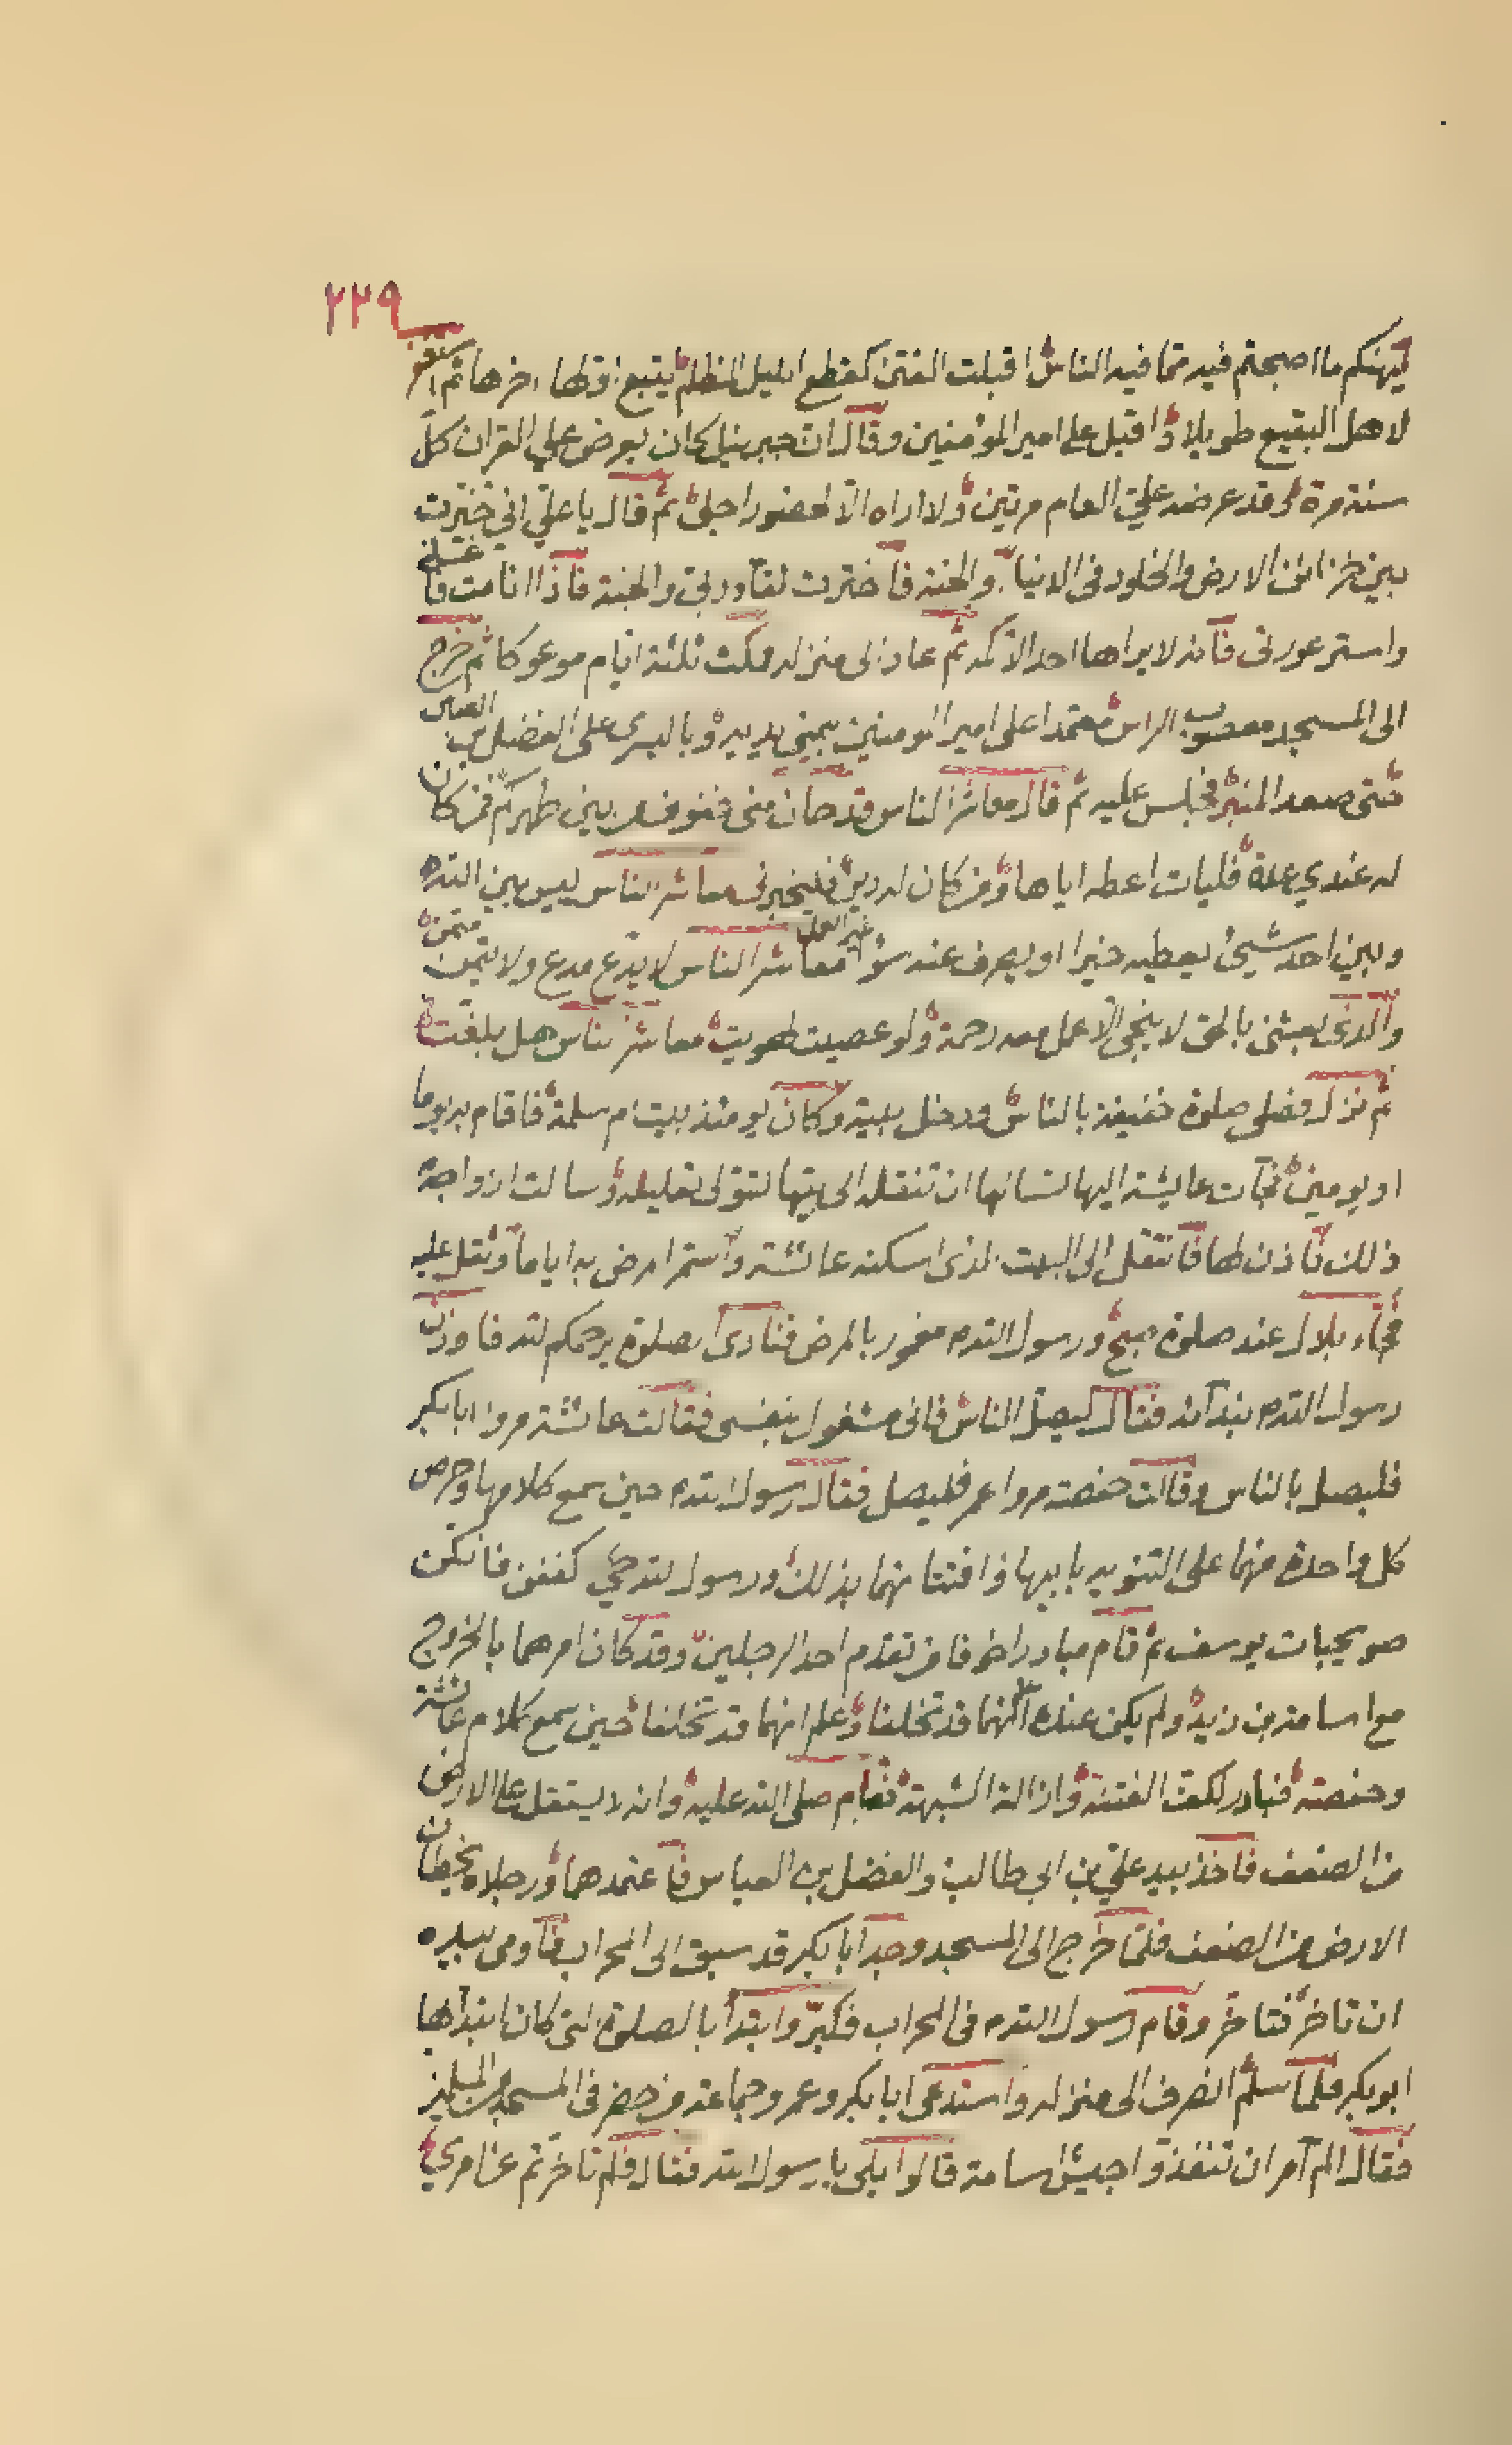 ٢٢٩
ليهنكم ما اصبحتم فيه مما فيه الناس اقبلت الفتن كقطع الليل المظلم يتبع اولها اخرها ثم استغفر
لاهل البقيع طويلا واقبل على امير المؤمنين وقال ان جبرئيل كان يعرض علي القران كل
سنة مرة وقد عرضه علي العام مرتين ولا اراه الا لحضور اجلي ثم قال يا علي اني خيرت
بين خزائن الارض والخلود في الدنيا والجنة فاخترت لقآء ربي والجنة فاذا انا مت فاغسلني
واستر عورتي فانه لا يراها احد الا كمه ثم عاد الى منزله فمكث ثلثة ايام موعوكا ثم خرج
الى المسجد معصوب الراس معتمدا على امير المومنين بيمنى يديه وباليسرى على الفضل بن العباس
حتى صعد المنبر فجلس عليه ثم قال معاشر الناس وقد حان مني خفوف من بين ظهركم فمن كان
له عندي عدة فليات اعطه اياها ومن كان له دين فليخبرني معاشر الناس ليس بين الله
وبين احد شيئ يعطيه خيرا او يصرف عنه سؤا غير العمل معاشر الناس لا يدع مدع ولا يتمن متمن
والذي بعثني بالحق لا ينجي الا عمل معه رحمة ولو عصيت لهويت معاشر الناس هل بلغت
ثم نزل فصلى صلوة خفيفة بالناس ودخل بيته وكان يومئذ بيت ام سلمة فاقام به يوما
او يومين فجآت عايشة اليها لتسالها ان تنقله الى بيتها لتتولى تعليله وسالت ازواجه
ذلك فاذن لها فانتقل الى البيت الذي اسكنه عائشة واستمر المرض به اياما وثقل عليه
فجآء بلال عند صلوة صبح ورسول الله مغمور بالمرض فنادى الصلوة يرحمكم الله فاوذن
رسول الله بندآئه فقال ليصل الناس فاني مشغول بنفسي فقالت عائشة مروا ابابكر
فليصل بالناس وقالت حفصة مروا عمر فليصل فقال رسول الله حين سمع كلامهما وحرص
كل واحدة منهما على التنويه بابيها وافتتانهما بذلك ورسول الله حي كففن فانكن
صويحبات يوسف ثم قام مبادرا خوفا من تقدم احد الرجلين وقد كان امرهما بالخروج
مع اسامة بن زيد ولم يكن عنده انهما قد تخلفا وعلم انهما قد تخلفا حين سمع كلام عائشة
وحفصة فبادر لكف الفتنة وازالة الشبهة فقام صلى الله عليه وانه لا يستقل على الارض
من الضعف فاخذ بيد علي بن ابي طالب والفضل بن العباس فاعتمدهما ورجلاه يخطان
الارض من الضعف فلما خرج الى المسجد وجد ابابكر قد سبق الى المحراب فاومى بيده
ان تاخر فتاخر وقام رسول الله في المحراب فكبر وابتدأ بالصلوة التي كان ابتدأها
ابوبكر فلما سلم انصرف الى منزله واستدعى ابابكر وعمر وجماعة من حضر في المسجد من المسلمين
فقال الم آمر ان تنفذوا جيش اسامة قالوا بلى يا رسول الله فقال فلم تاخرتم عن امري